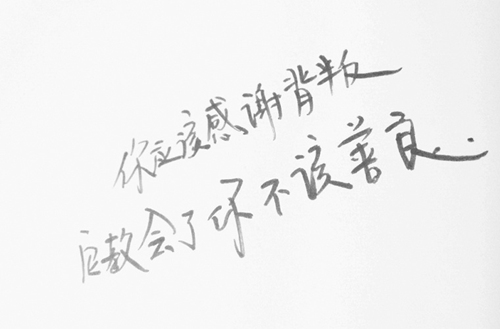 你应该感谢背叛
它教会了你不该善良..